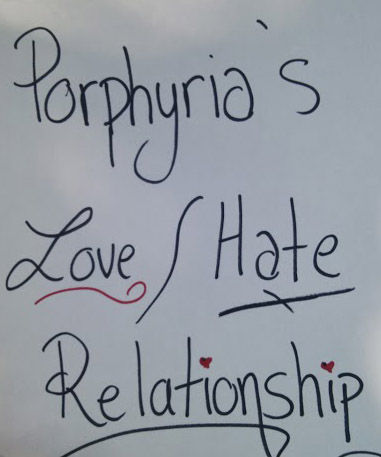 Porphyria's
Love/Hate
Relationship